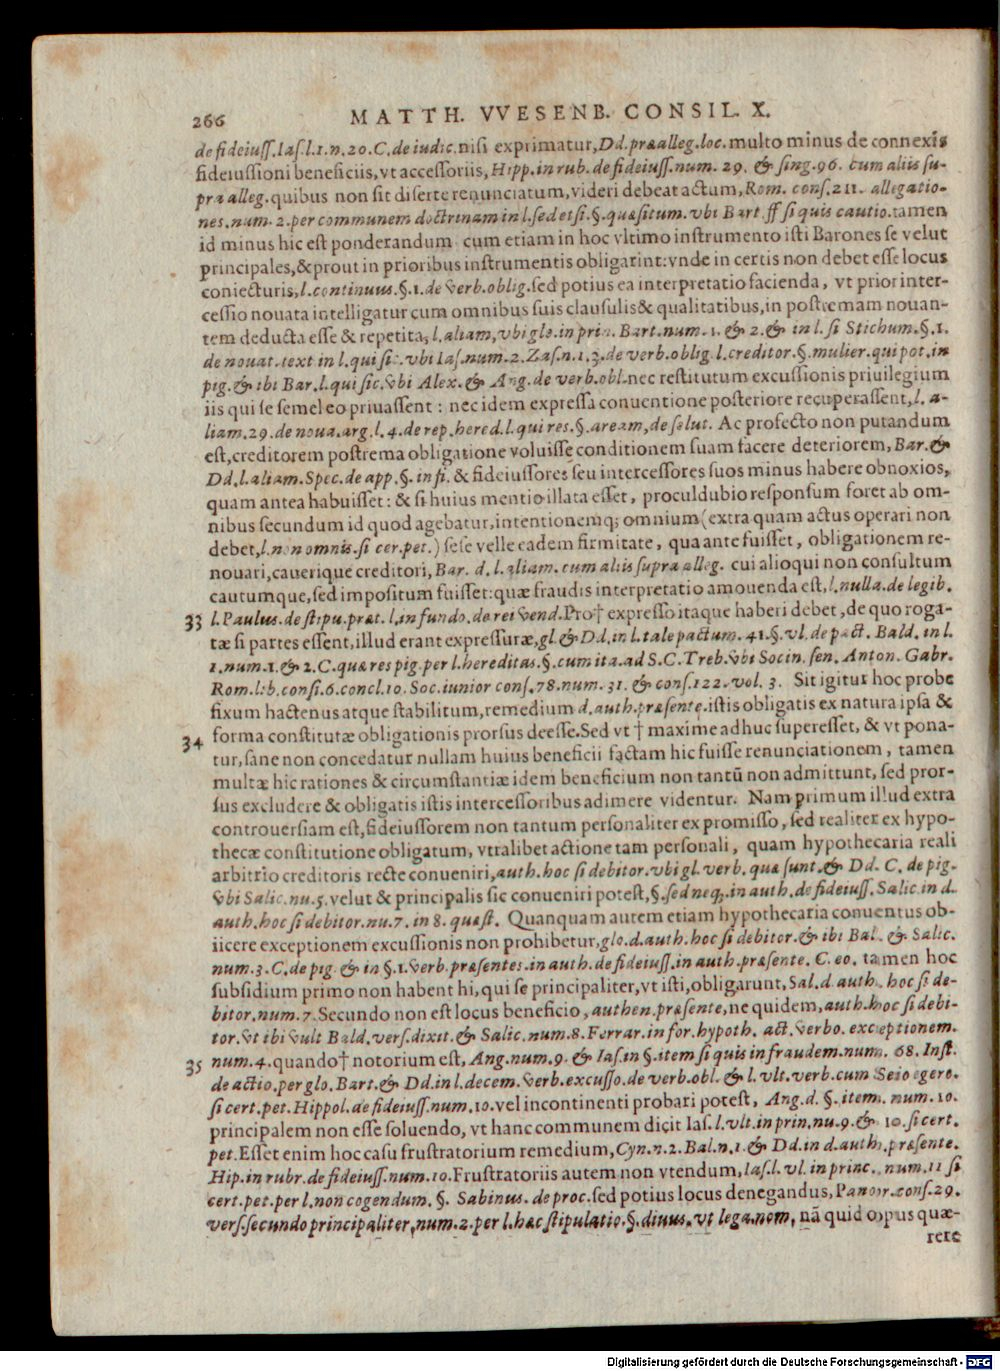 266 MATTH. VVESENB. CONSIL. X.
de fideiuſſ. Iaſ. l. 1. n. 20. C. de iudic. niſi exprimatur, Dd. præalleg. loc. multo minus de connexis
fideiuſſioni beneficiis, vt acceſſoriis, Hipp. in rub. de fideiuſſ. num. 29. & ſing. 96. cum aliis ſu-
pra alleg. quibus non ſit diſerte renunciatum, videri debeat actum, Rom. conſ. 211. allegatio-
nes. num. 2. per communem doctrinam in l. ſed etſi. §. quæſitum. vbi Bart. ff ſi quis cautio. tamen
id minus hic eſt ponderandum cum etiam in hoc vltimo inſtrumento iſti Barones ſe velut
principales, & prout in prioribus inſtrumentis obligarint: vnde in certis non debet eſſe locus
coniecturis, l. continuus. §. 1. de verb. oblig. ſed potius ea interpretatio facienda, vt prior inter-
ceſſio nouata intelligatur cum omnibus ſuis clauſulis & qualitatibus, in poſtremam nouan-
tem deducta eſſe & repetita, l. aliam, vbi glo. in prin. Bart. num. 1. & 2. & in l. ſi Stichum. §. 1.
de nouat. text in l. qui ſic. vbi Iaſ. num. 2. Zaſ. n. 1. 3. de verb. oblig. l. creditor. §. mulier. qui pot. in
pig. & ibi Bar. l. qui ſic. vbi Alex. & Ang. de verb. obl. nec reſtitutum excuſſionis priuilegium
iis qui ſe ſemel eo priuaſſent: nec idem expreſſa conuentione poſteriore recuperaſſent, l. a-
liam. 29. de noua. arg. l. 4. de rep. hered. l. qui res. §. aream, de ſolut. Ac profecto non putandum
eſt, creditorem poſtrema obligatione voluiſſe conditionem ſuam facere deteriorem, Bar. &
Dd. l. aliam. Spec. de app. §. in fi. & fideiuſſores ſeu interceſſores ſuos minus habere obnoxios,
quam antea habuiſſet: & ſi huius mentio illata eſſet, proculdubio reſponſum foret ab om-
nibus ſecundum id quod agebatur, intentionemq; omnium (extra quam actus operari non
debet, l. non omnis. ſi cer. pet.) ſeſe velle eadem firmitate, qua ante fuiſſet, obligationem re-
nouari, cauerique creditori, Bar. d. l. aliam. cum aliis ſupra alleg. cui alioqui non conſultum
cautumque, ſed impoſitum fuiſſet: quæ fraudis interpretatio amouenda eſt, l. nulla. de legib.
33 l. Paulus. de ſtipu. præt. l. in fundo. de rei vend. Pro† expreſſo itaque haberi debet, de quo roga-
tæ ſi partes eſſent, illud erant expreſſuræ, gl. & Dd. in l. tale pactum. 41. §. vl. de pact. Bald. in l.
1. num. 1. & 2. C. quæ res pig. per l. hereditas. §. cum ita. ad S. C. Treb. vbi Socin. ſen. Anton. Gabr.
Rom. lib. conſi. 6. concl. 10. Soc. iunior conſ. 78. num. 31. & conſ. 122. vol. 3. Sit igitur hoc probe
fixum hactenus atque ſtabilitum, remedium d. auth. præſente. iſtis obligatis ex natura ipſa &
34 forma conſtitutæ obligationis prorſus deeſſe. Sed vt † maxime adhuc ſupereſſet, & vt pona-
tur, ſane non concedatur nullam huius beneficii factam hic fuiſſe renunciationem, tamen
multæ hic rationes & circumſtantiæ idem beneficium non tantũ non admittunt, ſed pror-
ſus excludere & obligatis iſtis interceſſoribus adimere videntur. Nam primum illud extra
controuerſiam eſt, fideiuſſorem non tantum perſonaliter ex promiſſo, ſed realiter ex hypo-
thecæ conſtitutione obligatum, vtralibet actione tam perſonali, quam hypothecaria reali
arbitrio creditoris recte conueniri, auth. hoc ſi debitor. vbi gl. verb. quæ ſunt. & Dd. C. de pig.
vbi Salic. nu. 5. velut & principalis ſic conueniri poteſt, §. ſed neq;. in auth. de fideiuſſ. Salic. in d.
auth. hoc ſi debitor. nu. 7. in 8. quæſt. Quanquam autem etiam hypothecaria conuentus ob-
iicere exceptionem excuſſionis non prohibetur, glo. d. auth. hoc ſi debitor. & ibi Bal. & Salic.
num. 3. C. de pig. & in §. 1. verb. præſentes. in auth. de fideiuſſ. in auth. præſente. C. eo. tamen hoc
ſubſidium primo non habent hi, qui ſe principaliter, vt iſti, obligarunt, Sal. d. auth. hoc ſi de-
bitor. num. 7. Secundo non eſt locus beneficio, authen. præſente, ne quidem, auth. hoc ſi debi-
tor. vt ibi vult Bald. verſ. dixit. & Salic. num. 8. Ferrar. in for. hypoth. act. verbo. exceptionem.
35 num. 4. quando† notorium eſt, Ang. num. 9. & Iaſ. in §. item ſi quis in fraudem. num. 68. Inſt.
de actio. per glo. Bart. & Dd. in l. decem. verb. excuſſo. de verb. obl. & l. vlt. verb. cum Seio egero.
ſi cert. pet. Hippol. de fideiuſſ. num. 10. vel incontinenti probari poteſt, Ang. d. §. item. num. 10.
principalem non eſſe ſoluendo, vt hanc communem dicit Iaſ. l. vlt. in prin. nu. 9. & 10. ſi cert.
pet. Eſſet enim hoc caſu fruſtratorium remedium, Cyn. n. 2. Bal. n. 1. & Dd. in d. auth. præſente.
Hip. in rubr. de fideiuſſ. num. 10. Fruſtratoriis autem non vtendum, Iaſ. l. vl. in princ. num. 11 ſi
cert. pet. per l. non cogendum. §. Sabinus. de proc. ſed potius locus denegandus, Panor. conſ. 29.
verſ. ſecundo principaliter, num. 2. per l. hæc ſtipulatio. §. diuus. vt lega. nom, nã quid opus quæ-
rere
Digitalisierung gefördert durch die Deutsche Forschungsgemeinschaft - DFG